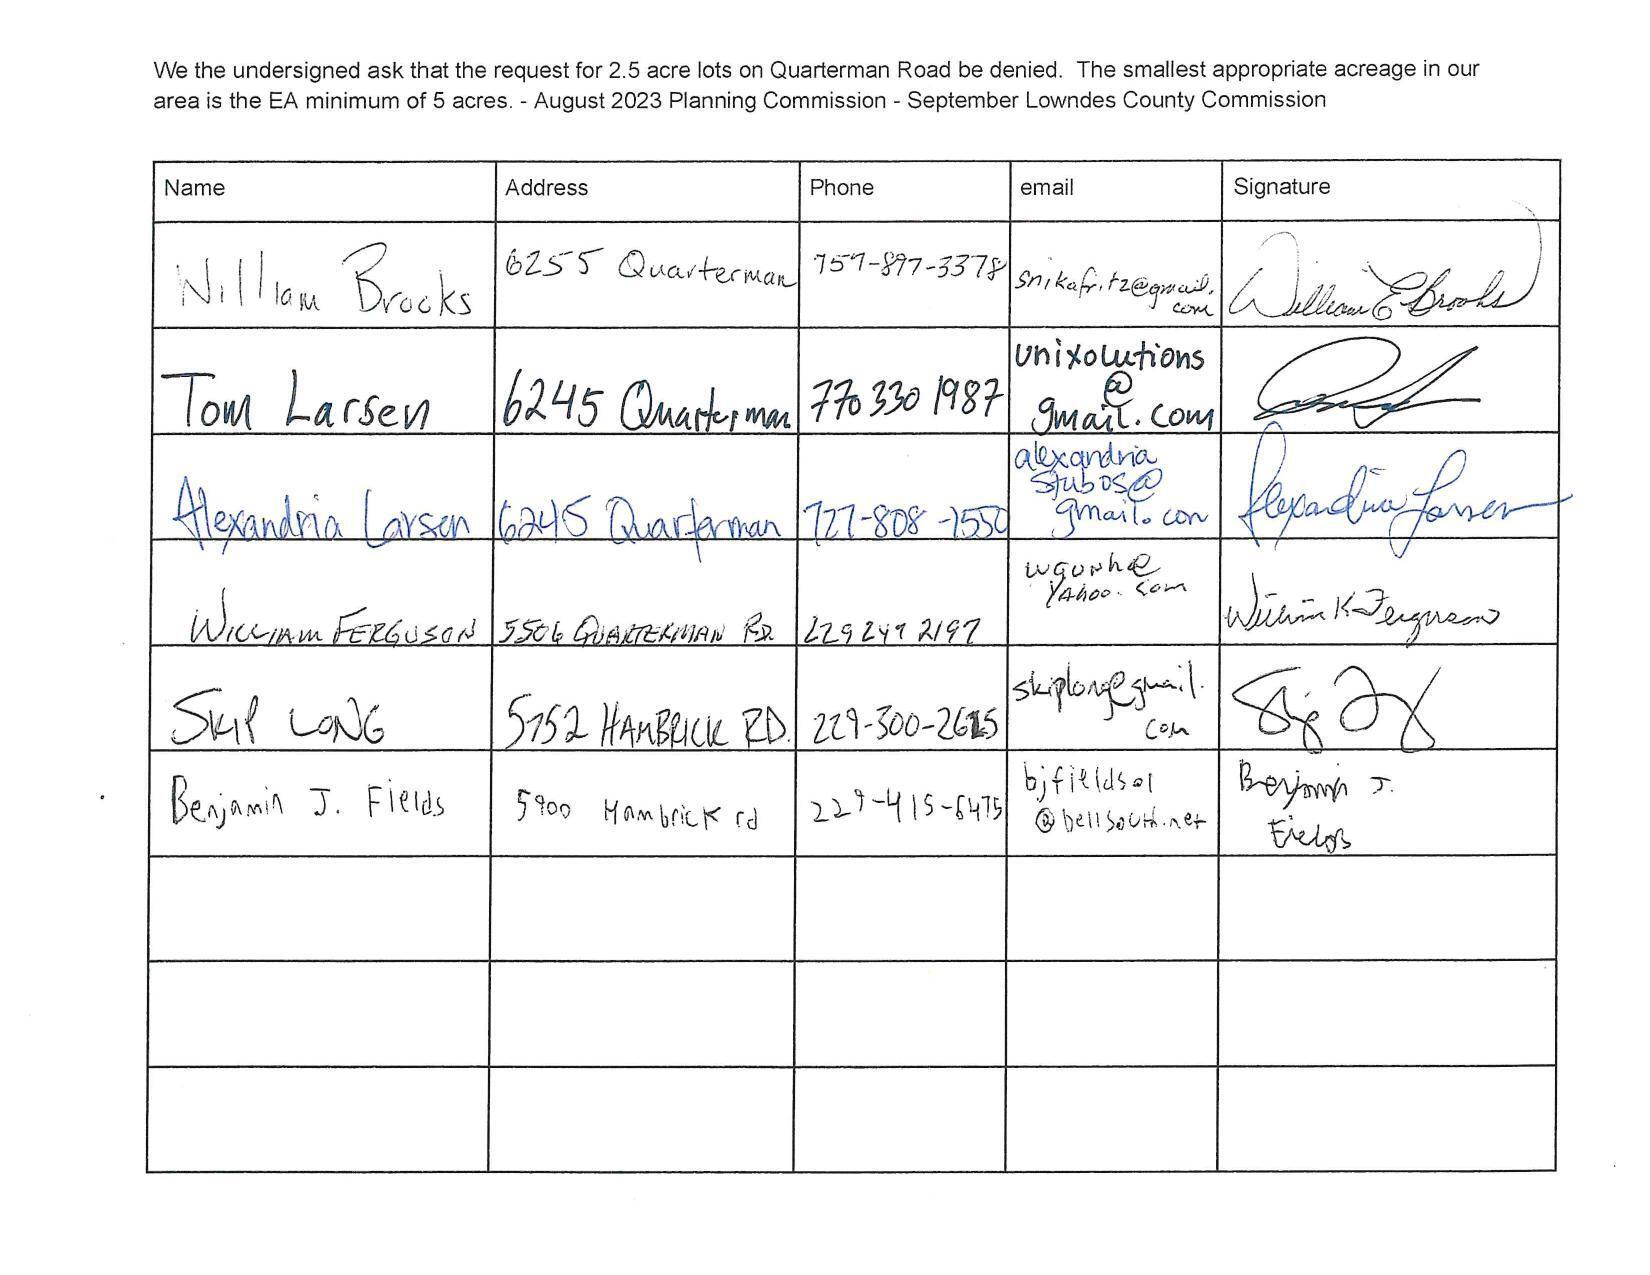 We the undersigned ask that the request for 2.5 acre lots on Quarterman Road be denied. The smallest appropriate acreage in our
area is the EA minimum of 5 acres. - August 2023 Planning Commission - September Lowndes County Commission
Name Address Phone email Signature
William Brooks 6255 Quarterman 757-897-3378 snikafritz@gmail.
com William E Brooks
Tom Larsen 6245 Quarterman 770 330 1987 unixolutions
@
gmail.com
Alexandria Larsen 6245 Quarterman 727-808-7550 alexandria
stubos@
gmail.com Alexandria Larsen
WILLIAM FERGUSON 5506 QUARTERMAN RD. 229 247 2197 wgunh@
YAhoo.com William K Ferguson
SKIP LONG 5752 HAMBRICK RD. 229-300-2615 skiplong@gmail.
com
Benjamin J. Fields 5900 Hambrick rd 229-415-6475 bjfields01
@bellsouth.net Benjamin J.
Fields